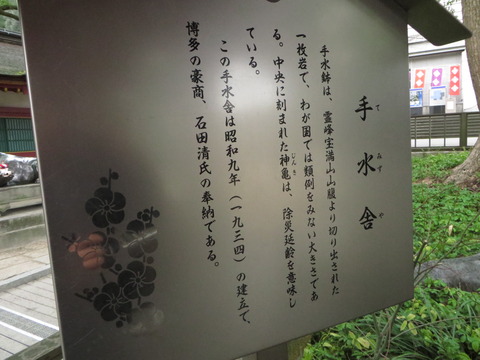 手水舎
てみずや
手水鉢は、霊峰宝満山山腹より切り出された
一枚岩で、わが国では類例をみない大きさであ
る。中央に刻まれた神亀は、除災延齢を意味し
しんき
ている。
この手水舎は昭和九年（一九三四）の建立で、
博多の豪商、石田清氏の奉納である。